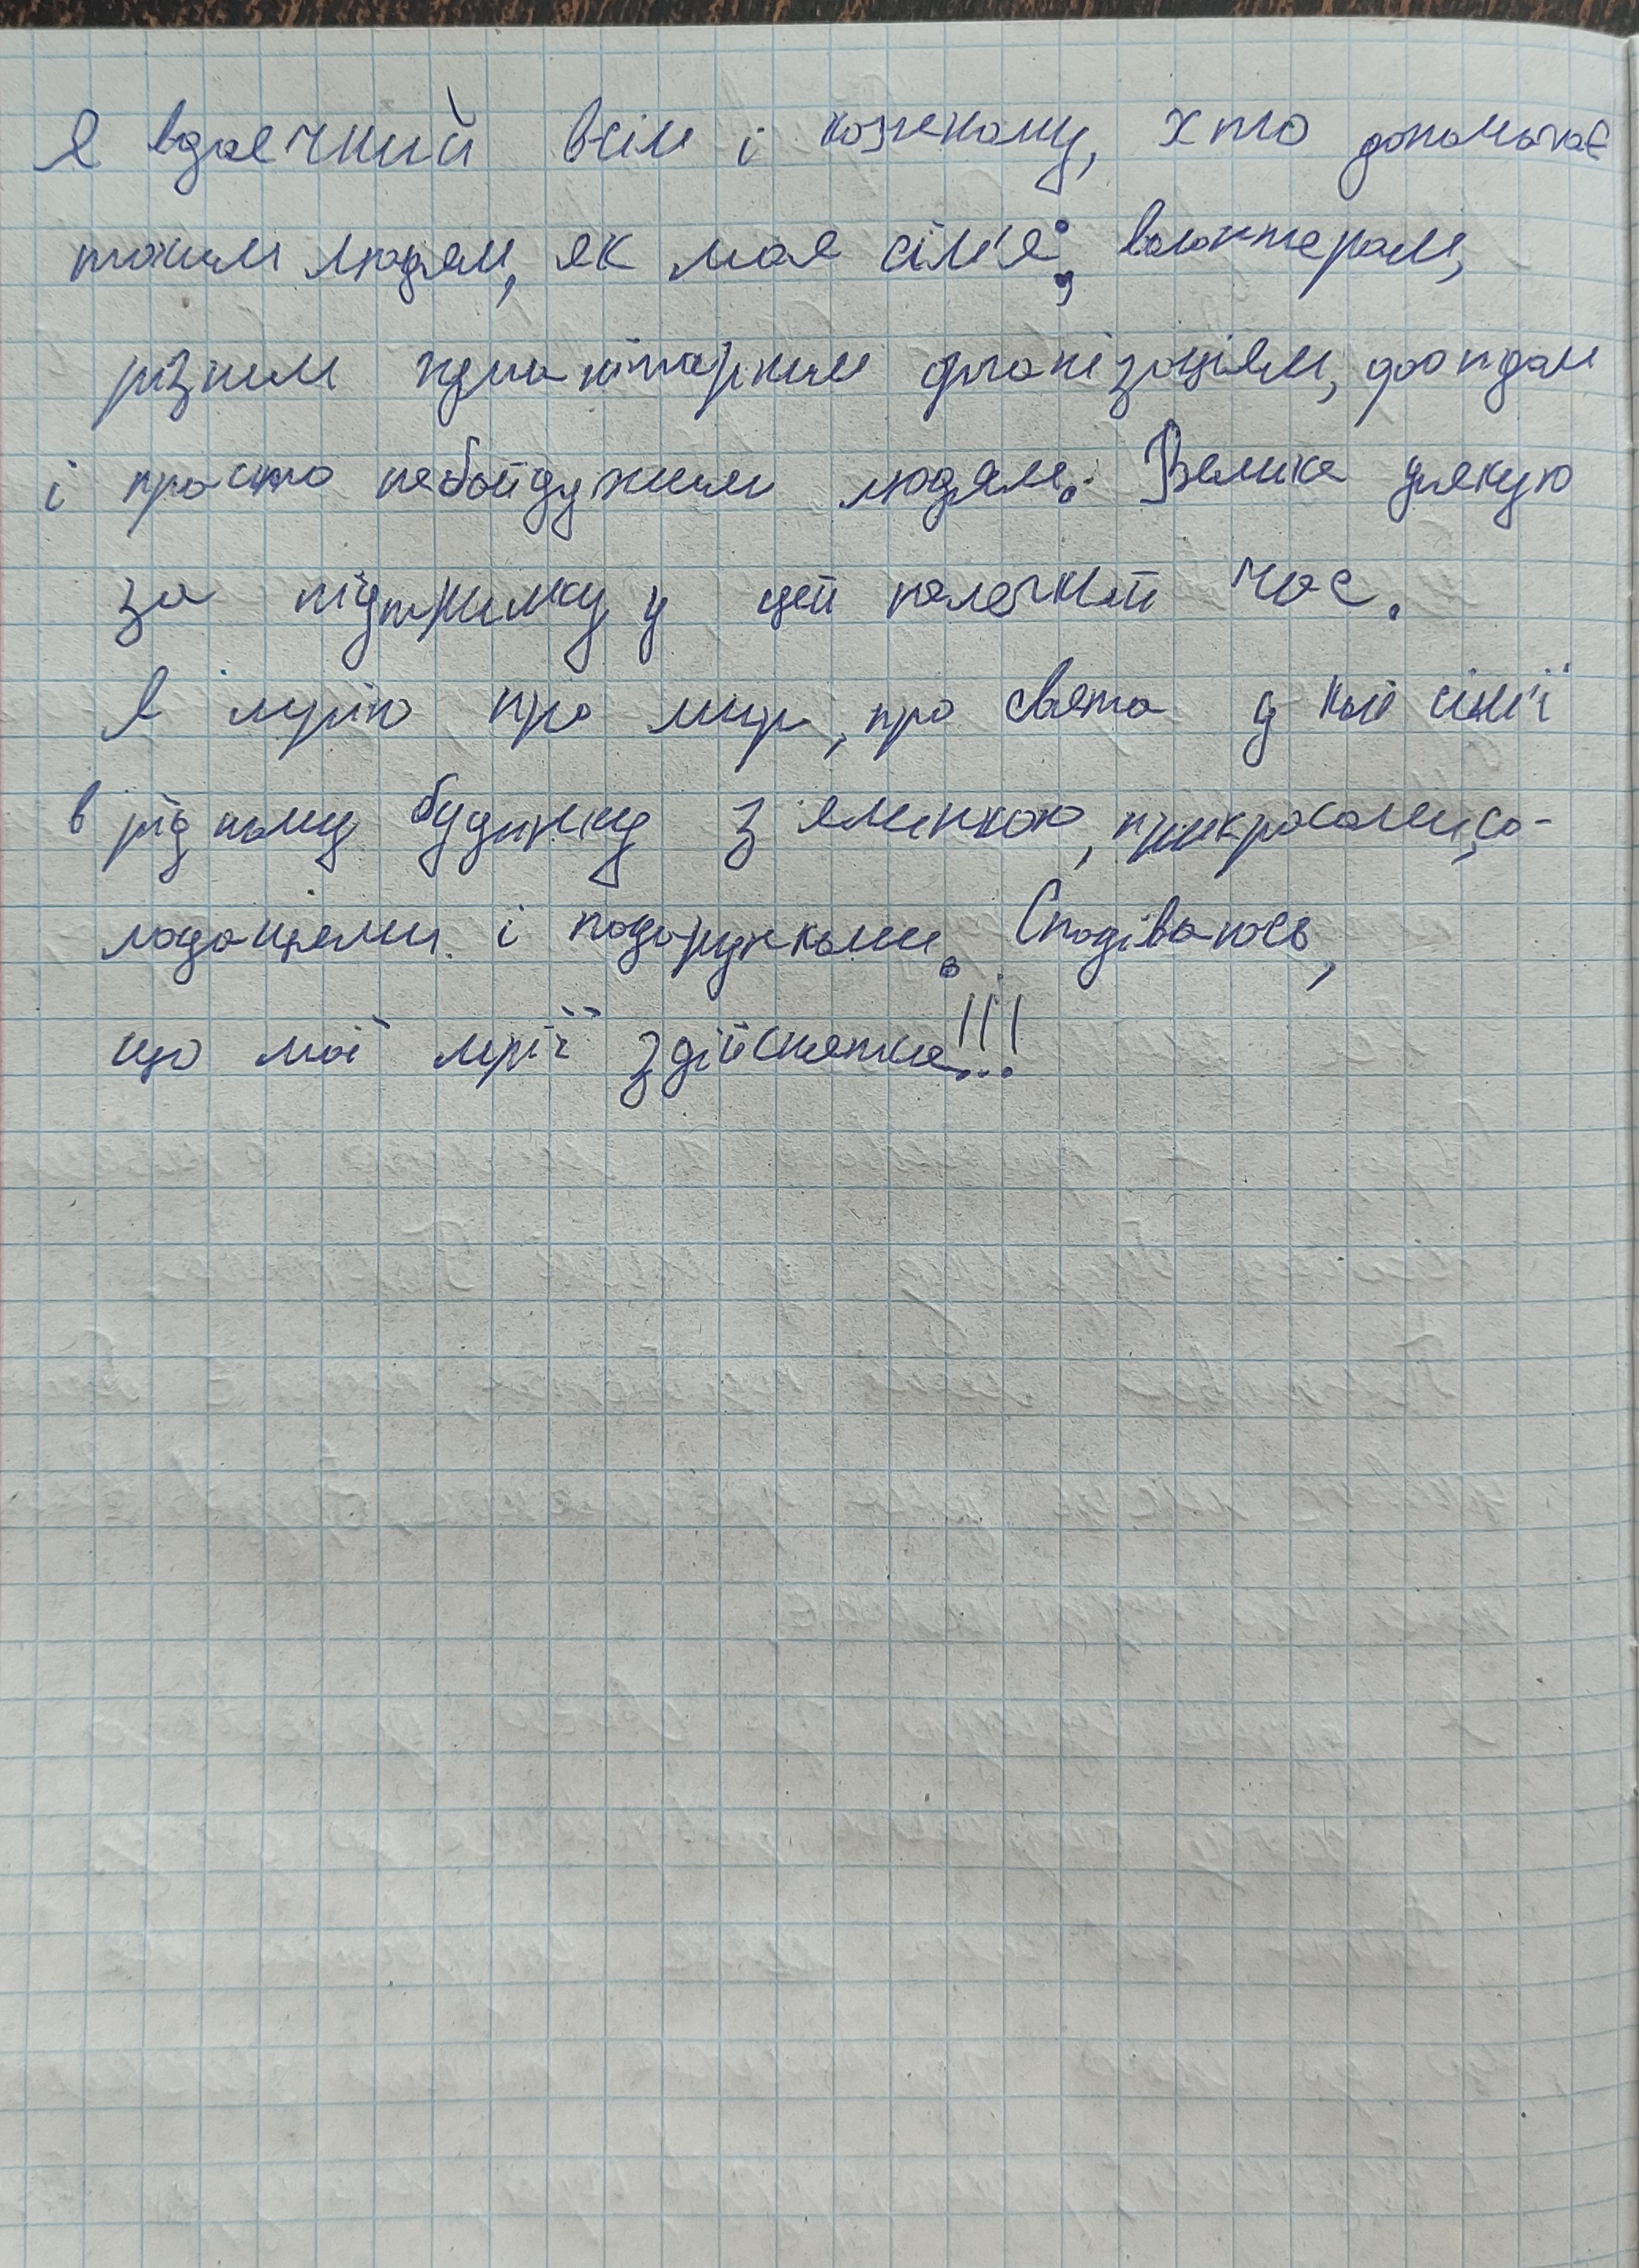 Я вдячний всім і кожному, хто допомагає
таким людям, як моя сім'я; волонтерам,
різним гуманітарним організаціям, фондам
і просто небайдужим людям. Велике дякую
за підтримку у цей нелегкий час.
Я мрію про мир, про свята у колі сім'ї
в рідному будинку з ялинкою, прикрасами, со-
лодощами і подарунками. Сподіваюсь,
що мої мрії здійсняться!!!